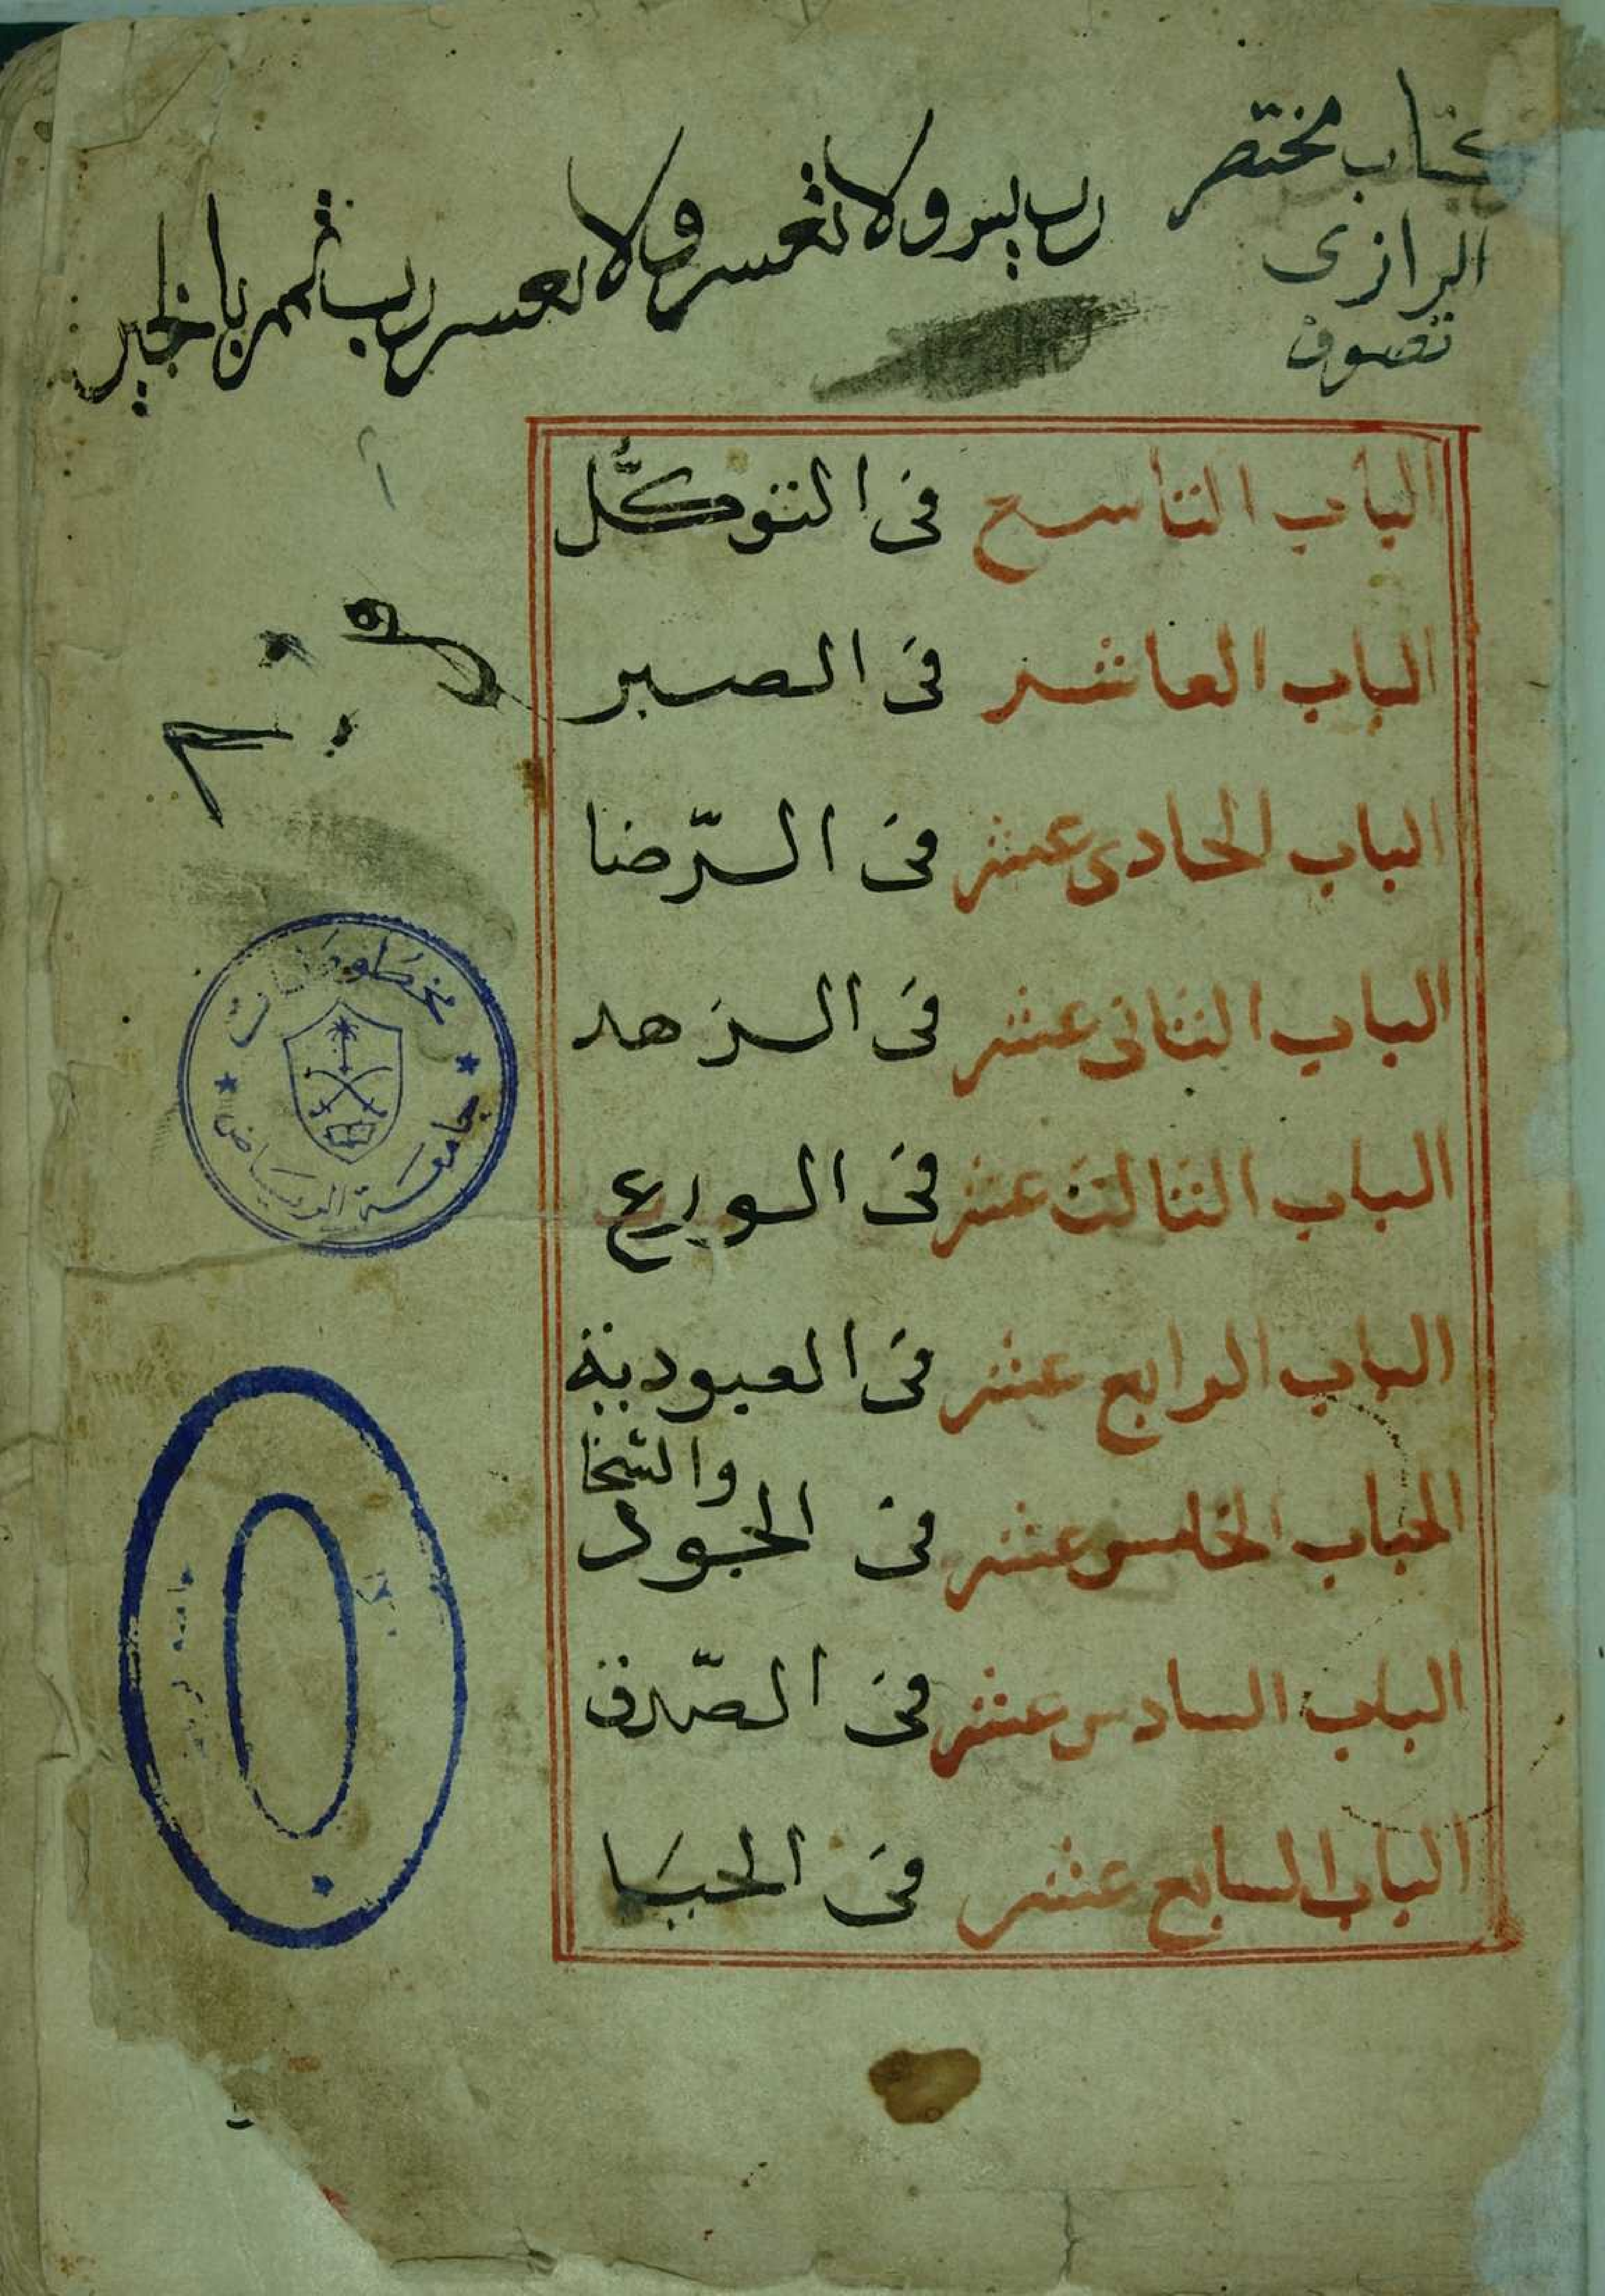 كتاب مختصر
الرازى
تصوف
رب يسر ولا تعسر ولا تعسر رب تمم بالخير
الباب التاسع فى التوكّل
الباب العاشر فى الصبر
الباب الحادى عشر فى الرّضا
الباب الثانى عشر فى الزهد
الباب الثالث عشر فى الورع
الباب الرابع عشر فى العبودية
الباب الخامس عشر فى الجود والسّخا
الباب السادس عشر فى الصّدق
الباب السابع عشر فى الحيا
مخطوطات
جامعة الرياض